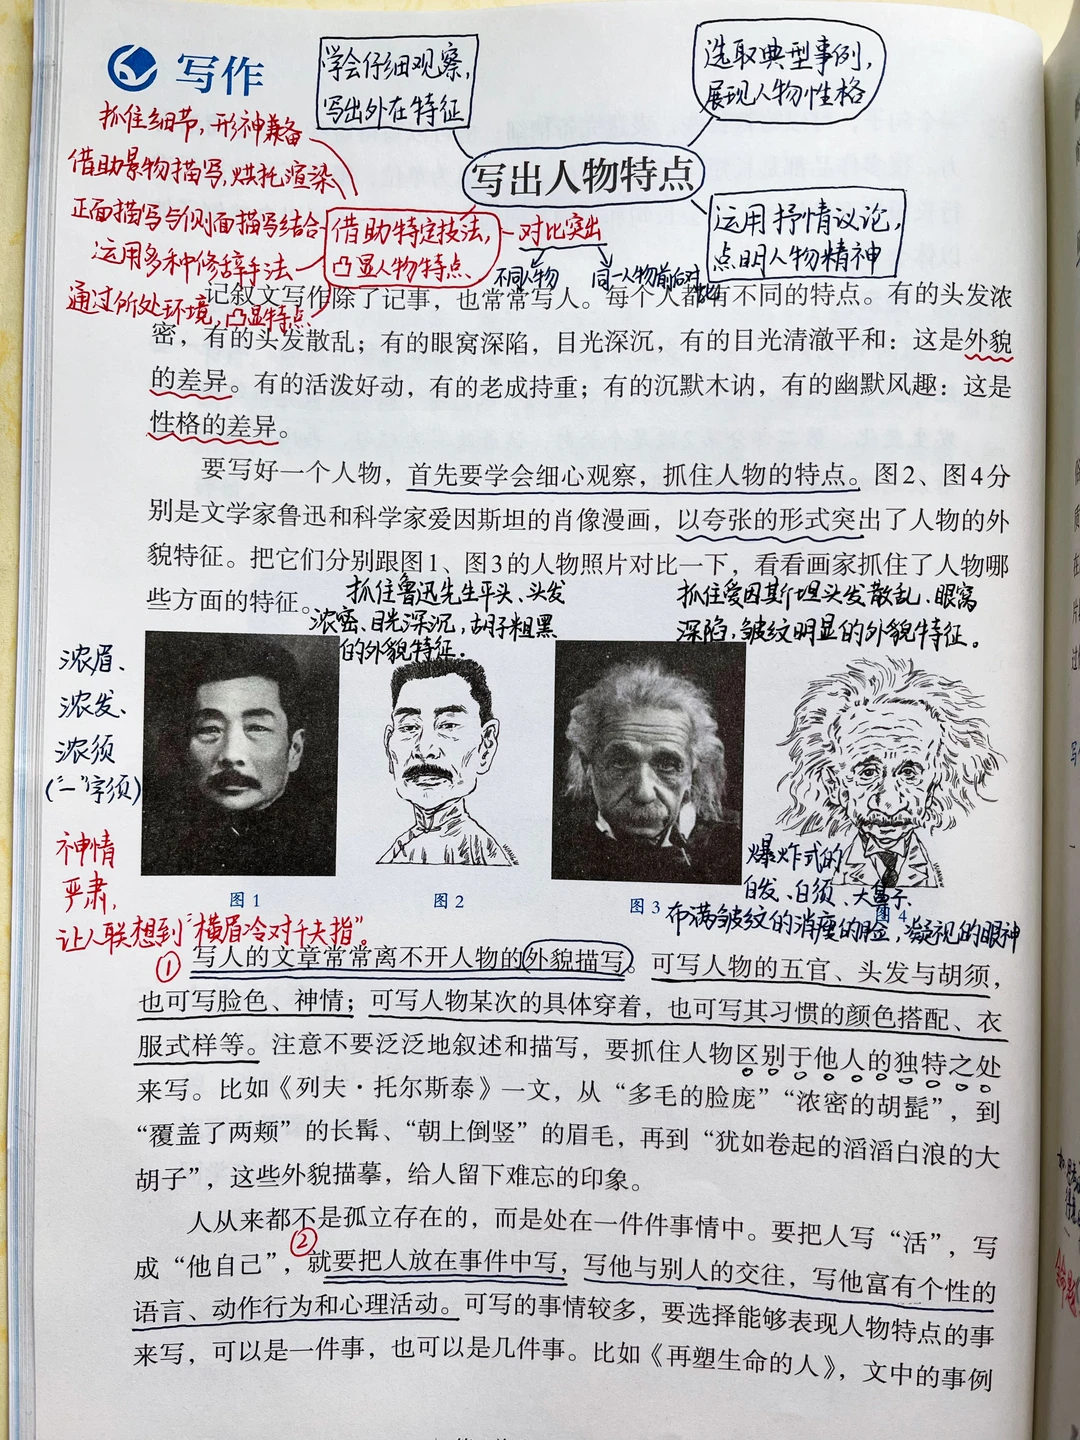 写作
学会仔细观察，
写出外在特征
选取典型事例，
展现人物性格
写出人物特点
抓住细节，形神兼备
借助景物描写，烘托渲染
正面描写与侧面描写结合
运用多种修辞手法
通过所处环境，凸显特点
借助特定技法，
凸显人物特点
对比突出
不同人物
同一人物前后对比
运用抒情议论，
点明人物精神
记叙文写作除了记事，也常常写人。每个人都有不同的特点。有的头发浓
密，有的头发散乱；有的眼窝深陷，目光深沉，有的目光清澈平和：这是外貌
的差异。有的活泼好动，有的老成持重；有的沉默木讷，有的幽默风趣：这是
性格的差异。
要写好一个人物，首先要学会细心观察，抓住人物的特点。图2、图4分
别是文学家鲁迅和科学家爱因斯坦的肖像漫画，以夸张的形式突出了人物的外
貌特征。把它们分别跟图1、图3的人物照片对比一下，看看画家抓住了人物哪
些方面的特征。
抓住鲁迅先生平头、头发
浓密、目光深沉，胡子粗黑
的外貌特征．
抓住爱因斯坦头发散乱、眼窝
深陷，皱纹明显的外貌特征。
浓眉、
浓发、
浓须
(“一”字须)
神情
严肃，
让人联想到“横眉冷对千夫指”。
爆炸式的
白发、白须、大鼻子、
布满皱纹的消瘦的脸，凝视的眼神
图1
图2
图3
图4
①
写人的文章常常离不开人物的外貌描写。可写人物的五官、头发与胡须，
也可写脸色、神情；可写人物某次的具体穿着，也可写其习惯的颜色搭配、衣
服式样等。注意不要泛泛地叙述和描写，要抓住人物区别于他人的独特之处
来写。比如《列夫·托尔斯泰》一文，从“多毛的脸庞”“浓密的胡髭”，到
“覆盖了两颊”的长髯、“朝上倒竖”的眉毛，再到“犹如卷起的滔滔白浪的大
胡子”，这些外貌描摹，给人留下难忘的印象。
人从来都不是孤立存在的，而是处在一件件事情中。要把人写“活”，写
②
成“他自己”，就要把人放在事件中写，写他与别人的交往，写他富有个性的
语言、动作行为和心理活动。可写的事情较多，要选择能够表现人物特点的事
来写，可以是一件事，也可以是几件事。比如《再塑生命的人》，文中的事例